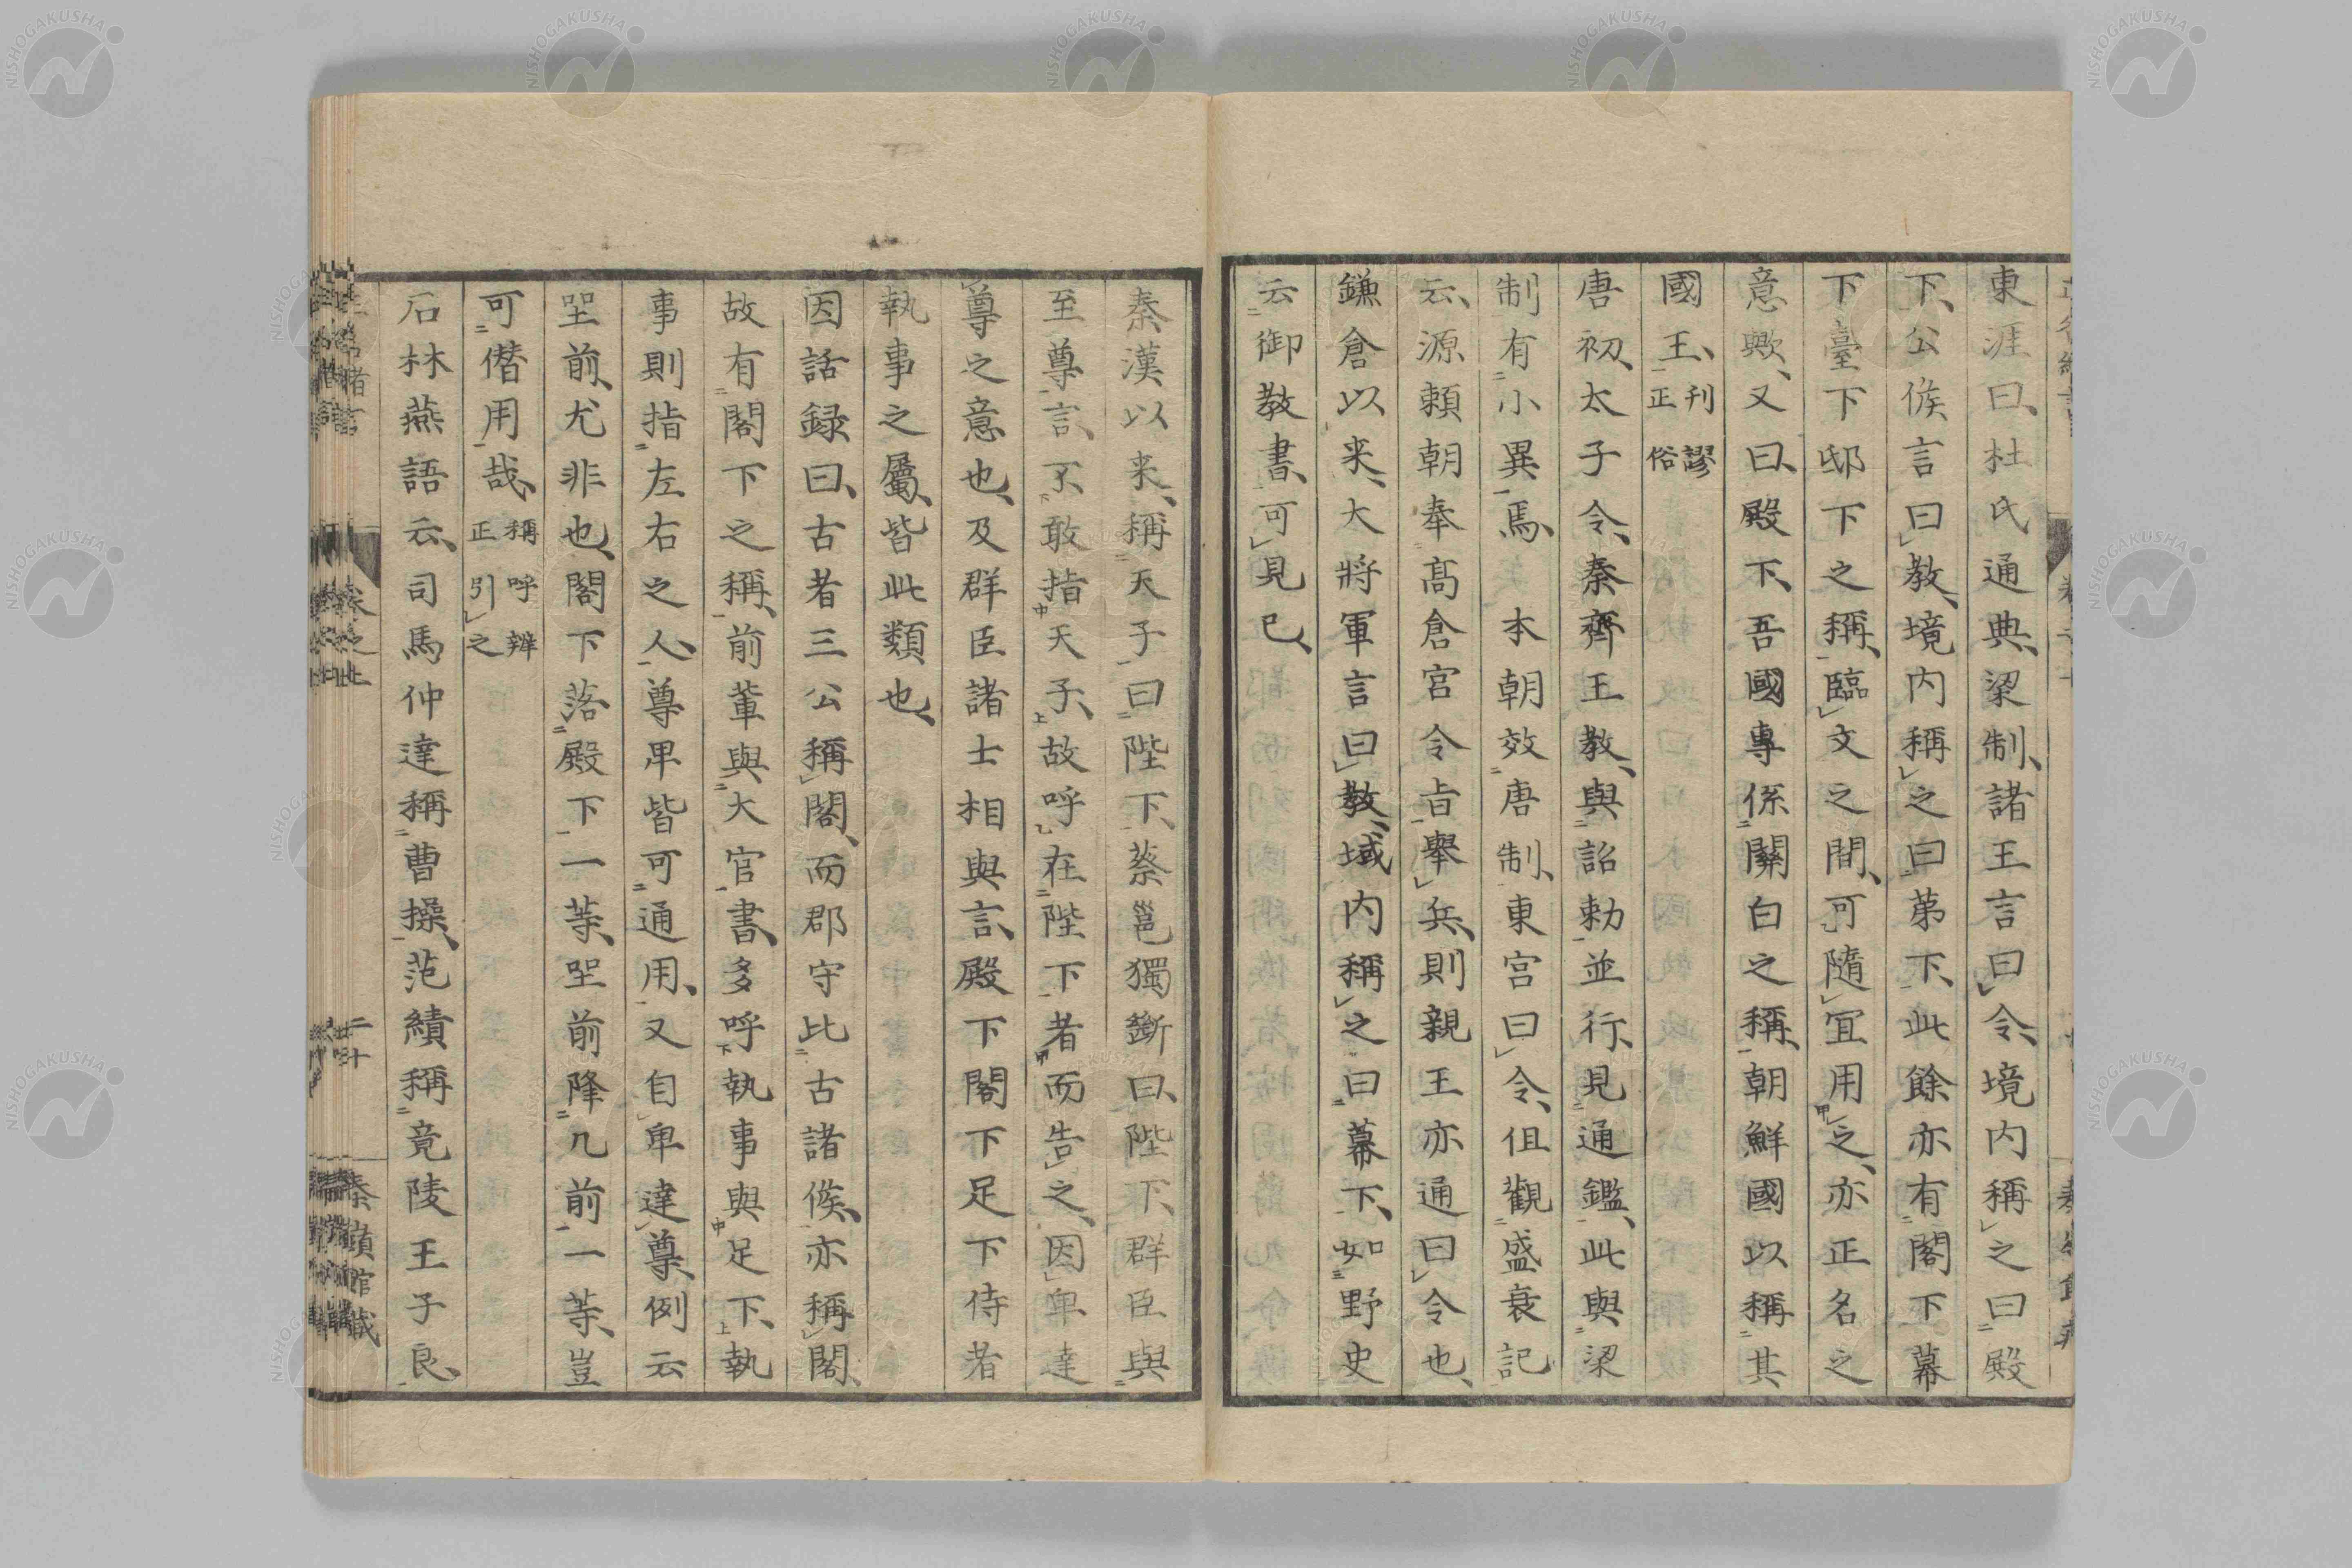 東涯曰、杜氏通典、梁制、諸王言曰令、境内稱之曰殿
下、公侯言曰教、境内稱之曰苐下、此餘亦有閣下幕
下臺下邸下之稱、臨文之間、可隨宜用之、亦正名之
意歟、又曰、殿下、吾國專係關白之稱、朝鮮國以稱其
國王、刊謬正俗
唐初、太子令、秦齊王教、與詔勅並行、見通鑑、此與梁
制有小異焉、本朝效唐制、東宮曰令、伹觀盛衰記
云、源頼朝奉髙倉宮令旨舉兵、則親王亦通曰令也、
鎌倉以来、大將軍言曰教、域内稱之曰幕下、如野史
云御教書、可見已、
秦漢以来、稱天子曰陛下、蔡邕獨斷曰、陛下、群臣與
至尊言、不敢指天子、故呼在陛下者而告之、因卑達
尊之意也、及群臣諸士相與言、殿下閣下足下侍者
執事之屬、皆此類也、
因話録曰、古者三公稱閣、而郡守比古諸侯、亦稱閣、
故有閣下之稱、前輩與大官書、多呼執事與足下、執
事則指左右之人、尊卑皆可通用、又自卑達尊、例云
坐前、尤非也、閣下落殿下一等、坐前降几前一等、豈
可僭用哉、稱呼辨正引之
石林燕語云、司馬仲達稱曹操、范縝稱竟陵王子良、